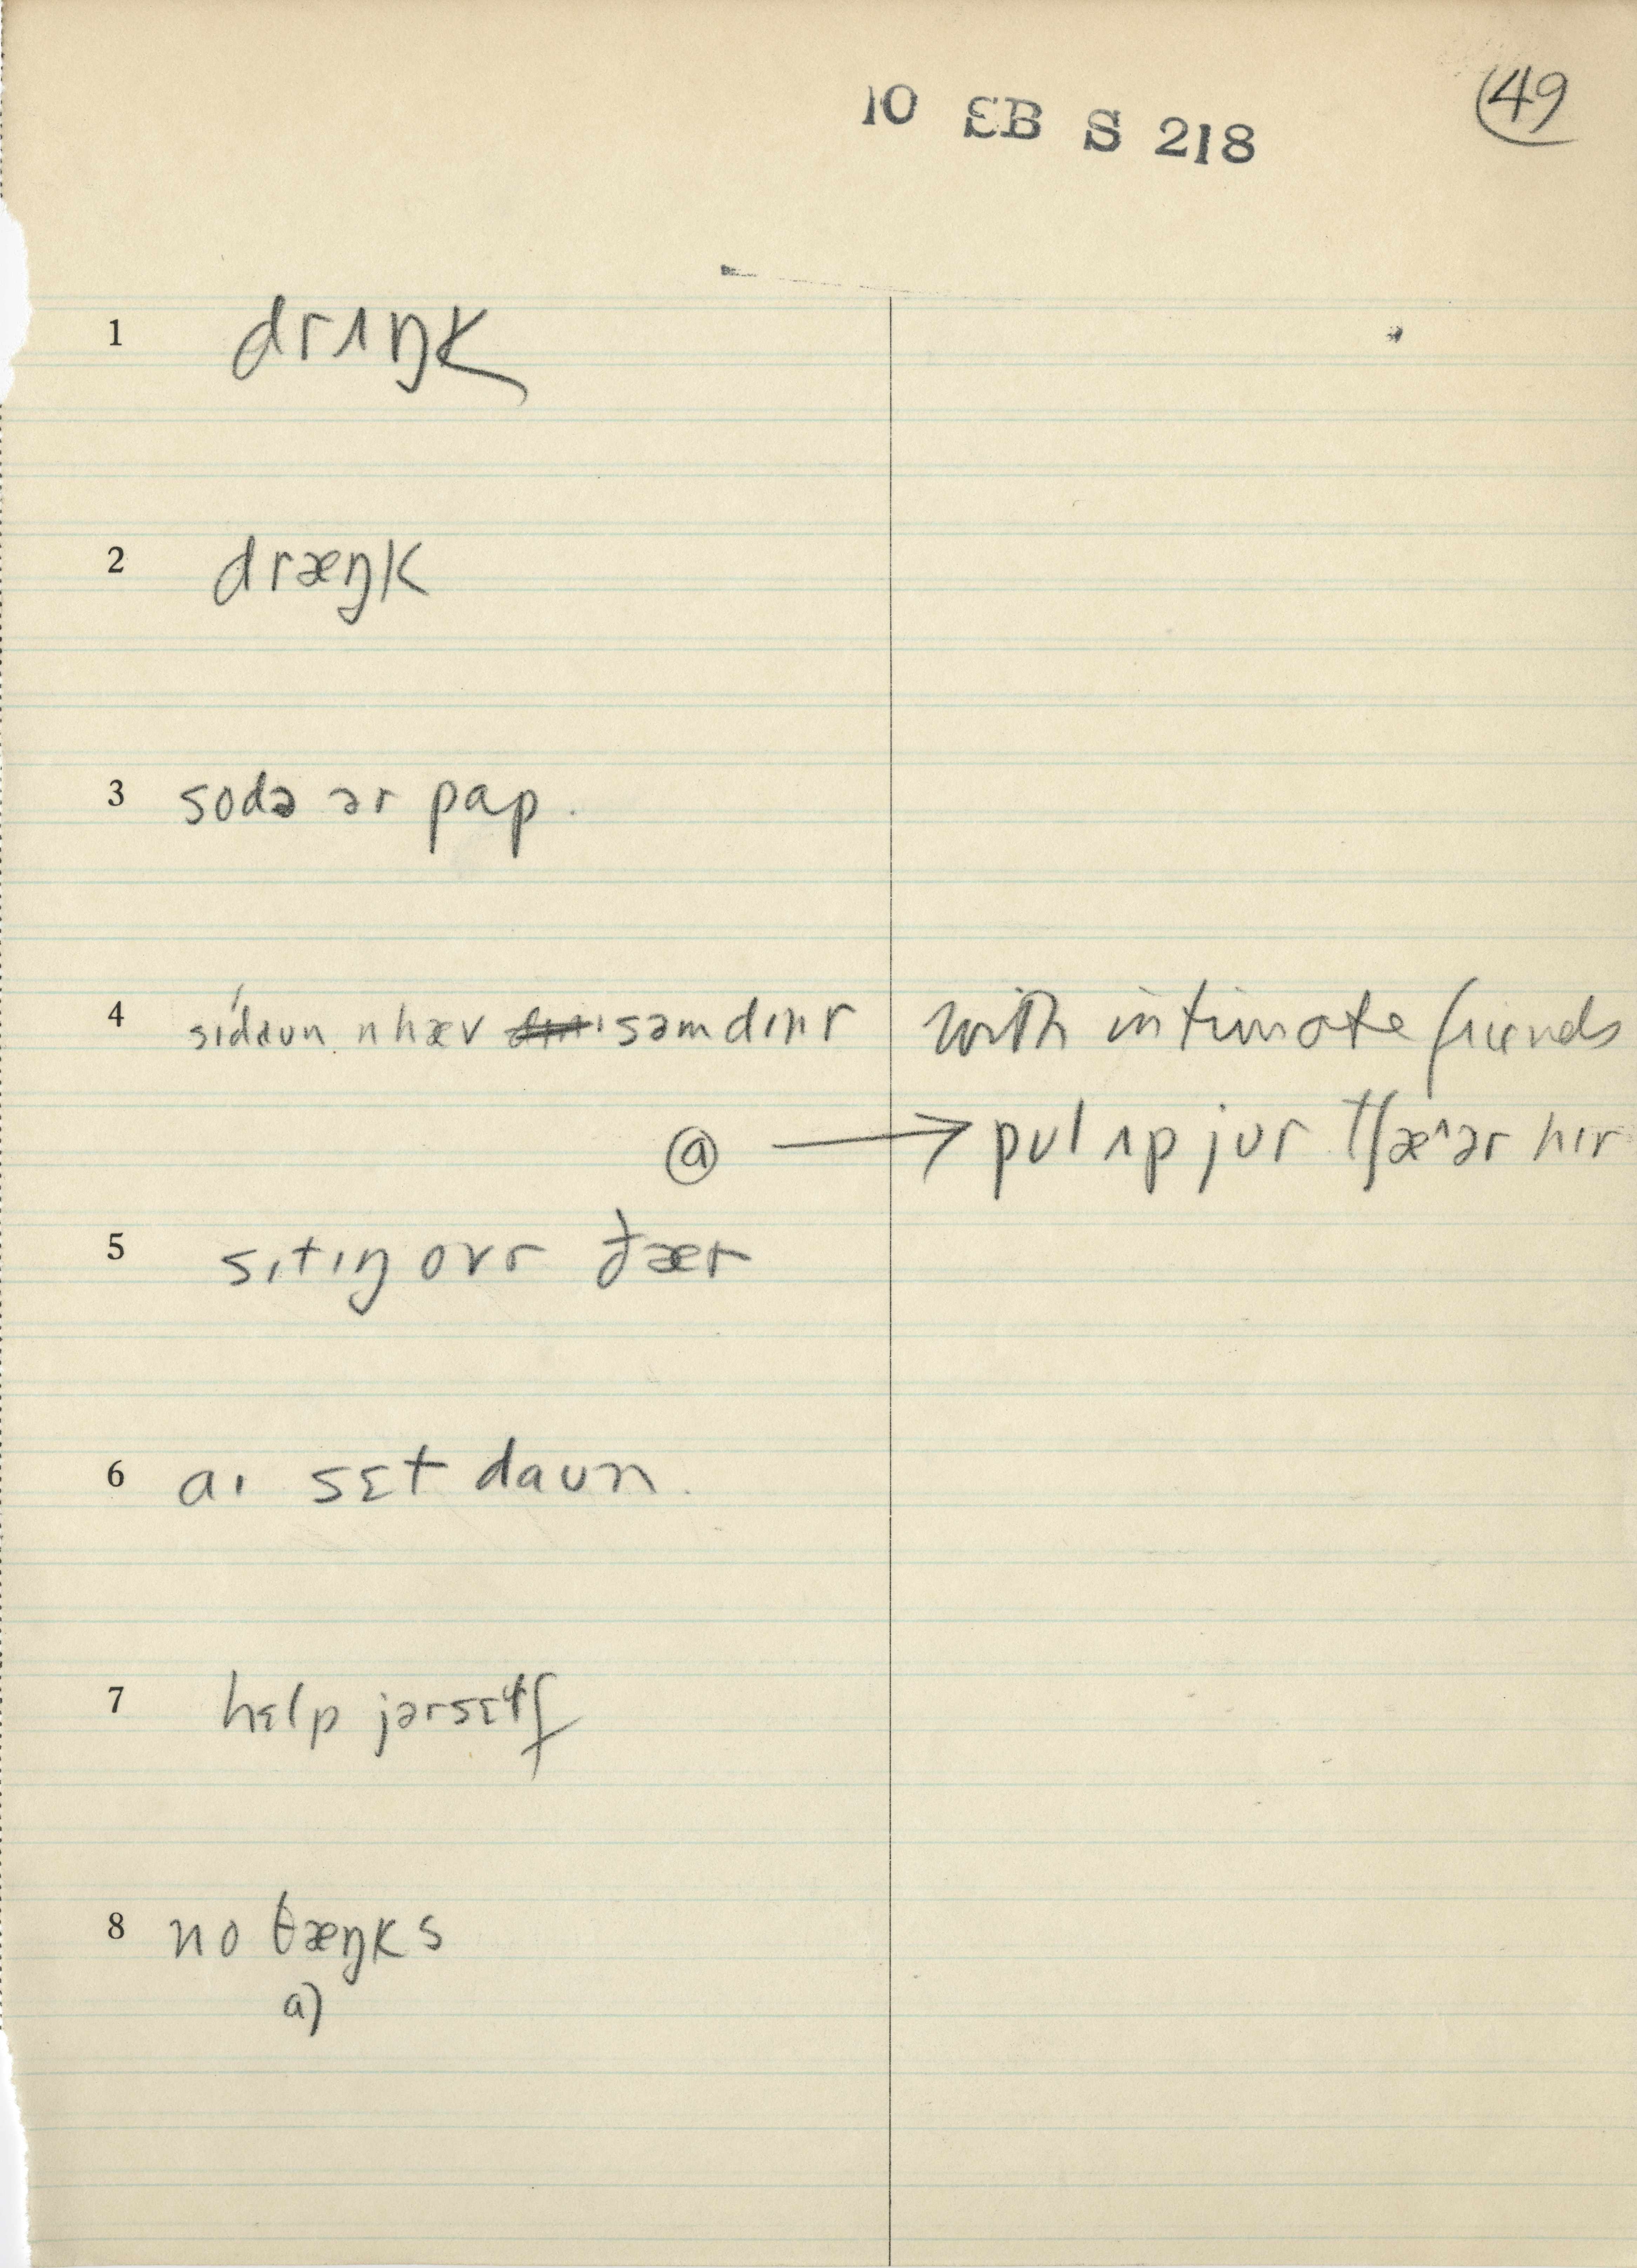 10 EB S 218
49
1 drʌŋk
2 dræŋk
3 sodə ər pap.
4 sídaun n hæv səm dɪnr with intimate friends
ⓐ → pʊl ʌp jʊr tʃæ^ər hɪr
5 sɪtɪŋ ovr ðær
6 aɪ sɛt daʊn.
7 hɛlp jərsɛɫf
8 no θæŋks
a)